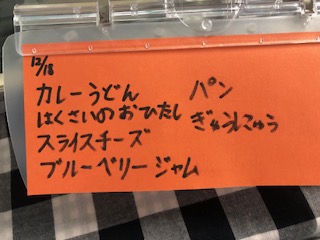 12/18
カレーうどん
はくさいのおひたし
スライスチーズ
ブルーベリージャム
パン
ぎゅうにゅう